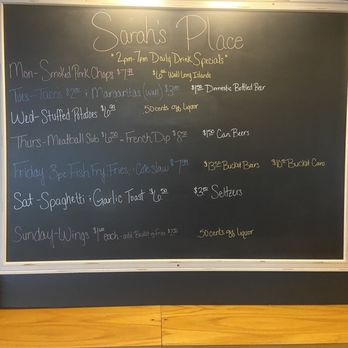 Sarah's Place
"2pm-7pm Daily Drink Specials"
Mon- Smoked Pork Chops $7.99 $6.00 Wall Long Islands
Tues-Tacos $2.00 & Margaritas (Wall) $3.00 Domestic Bottled Beer
Wed- Stuffed Potatoes $6.50 50 cents off Liquor
Thurs- Meatball Sub $6.50 - French Dip $8.50 Can Beers
Friday 3pc Fish Fry: Fries, & Coleslaw $7.99 Bucket Bottles Bucket Cans
Sat -Spaghetti & Garlic Toast $6.50 $3.00 Seltzers
Sunday-Wings each - add Fries 50 cents off Liquor